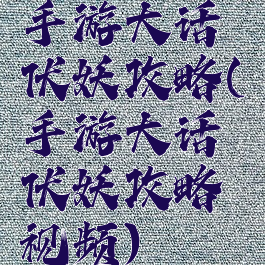 手游大话
伏妖攻略(
手游大话
伏妖攻略
视频)